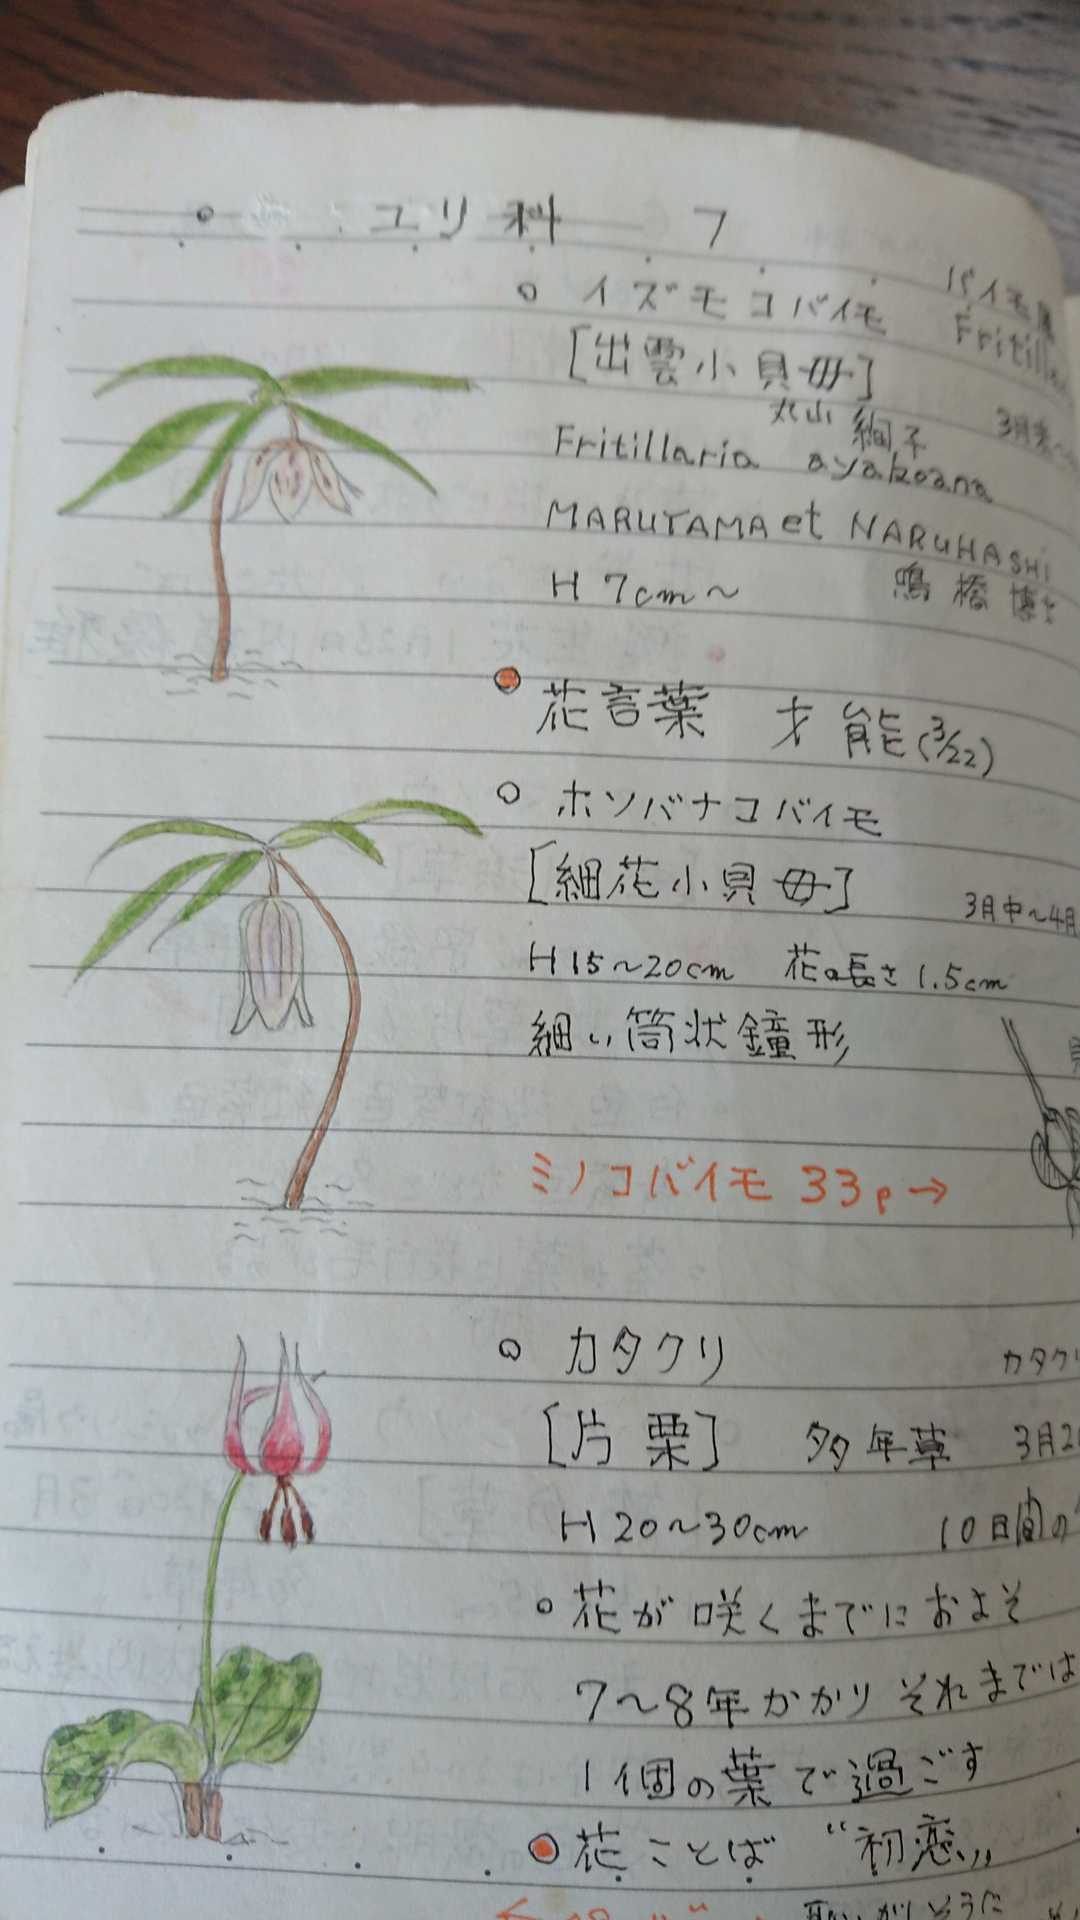 ユリ科 7
イズモコバイモ バイモ属
[出雲小貝母] Fritilla
丸山 絢子 3月末~
Fritillaria ayakoana
MARUYAMA et NARUHASHI
H 7cm~ 鳴橋
花言葉 才能(3/22)
ホソバナコバイモ
[細花小貝母] 3月中~4月
H15~20cm 花の長さ 1.5cm
細い筒状鐘形
ミノコバイモ 33p→
カタクリ カタク
[片栗] 多年草 3月2
H20~30cm 10日間の
花が咲くまでにおよそ
7~8年かかりそれまでは
1個の葉で過ごす
花ことば “初恋„